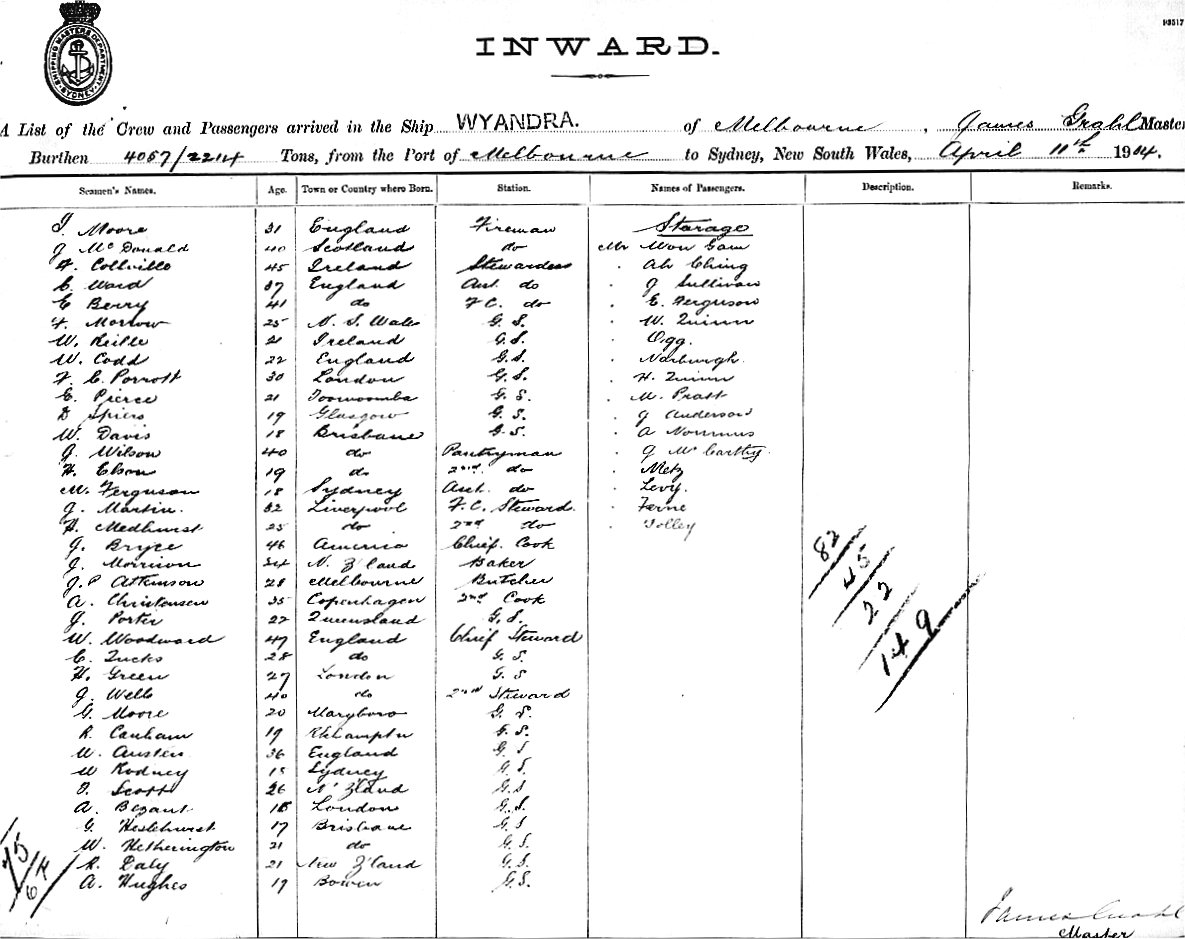 SHIPPING MASTERS DEPARTMENT SYDNEY
INWARD.
A List of the Crew and Passengers arrived in the Ship WYANDRA. of Melbourne, James Grahl Master
Burthen 4057/2214 Tons, from the Port of Melbourne to Sydney, New South Wales, April 11th 1914.
Seamen's Names. Age. Town or Country where Born. Station. Names of Passengers. Description. Remarks.
Moore 31 England Fireman Storage
J McDonald 40 Scotland do Mr Won Gam
Collville 45 Ireland Stewardess . Ah Ching
C Ward 37 England Ast. do . J Sullivan
C Berry 41 do F.C. do . E. Ferguson
F. Morrow 25 N. S. Wales G.S. . W. Quinn
W. 21 Ireland G.S. . Ogg.
W. Codd 22 England G.S. . Narburgh.
F. C. Porrott 30 London G.S. . H. Quinn
C. Pierce 21 Toowoomba G.S. . M. Pratt
D Spiers 19 Glasgow G.S. . J Anderson
W. Davis 18 Brisbane G.S. . A
J. Wilson 40 do Pantryman . J McCarthy.
H. Elson 19 do 2nd do . Metz
M. Ferguson 18 Sydney Asst. do . Levy.
J. Martin. 32 Liverpool F.C. Steward. . Ferne
H. Medhurst 25 do 2nd do . Tolley
J. Bryce 46 America Chief Cook
J. Morrison 34 N. Z'land Baker
J.P Atkinson 28 Melbourne Butcher
A. Christensen 35 Copenhagen 2nd Cook
J. Porter 22 Queensland G.S.
W. Woodward 47 England Chief Steward
C. 28 do G.S.
H. Green 27 London G.S
J. Wells 40 do 2nd Steward
G. Moore 20 Maryboro G.S.
R. Canham 19 G.S.
W. Austen 36 England G.S
W Rodney 18 Sydney G.S.
Scott 26 N' Z'land G.S
A. Bezant 18 London G.S.
G. Heslehurst 17 Brisbane G.S
W. Hetherington 21 do G.S.
R. Daly 21 New Z'land G.S.
A. Hughes 19 Bowen G.S.
82
45
22
149
75
64
James Grahl
Master